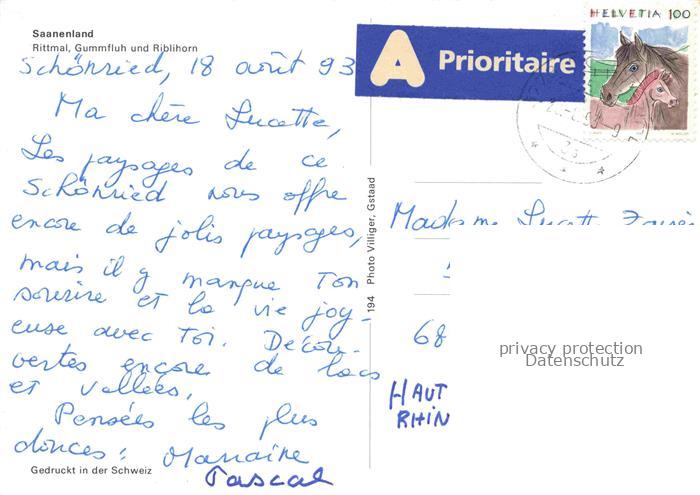 Saanenland
Rittmal, Gummfluh und Riblihorn
Schönried, 18 août 93
Ma chère Lucette,
Les paysages de ce
Schönried nous offre
encore de jolis paysages,
mais il y manque Ton
sourire et la vie joy-
euse avec Toi. Décou-
vertes encore de lacs
et vallées.
Pensées les plus
douces: Marraine
Pascal
Gedruckt in der Schweiz
194 Photo Villiger, Gstaad
A Prioritaire
HELVETIA 100
Madame Lucette
68
HAUT
RHIN
privacy protection
Datenschutz